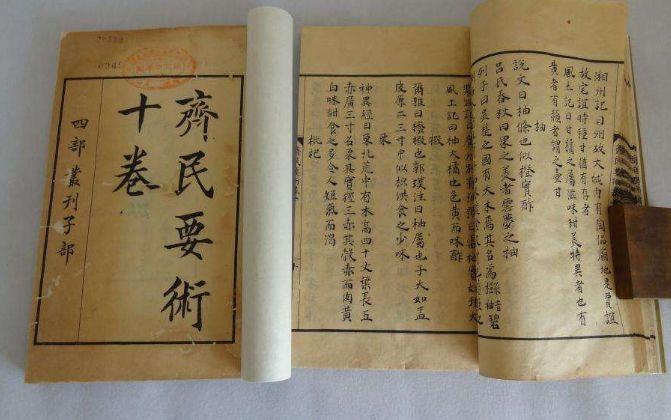 齊民要術
十卷
四部叢刊子部
湘州記曰州故大城内有陶侃廟地是賈誼
故宅誼時種甘猶有存者
風土記曰甘橘之屬滋味甜美特異者也有
黄者有赬者謂之壷甘
柚
說文曰柚條也似橙實酢
吕氏春秋曰果之美者雲夢之柚
列子曰吴楚之國有大木焉其名為櫾音柚碧
風土記曰柚大橘也色黄而味酢
椵
爾雅曰櫠椵也郭璞注曰柚屬也子大如盂
皮厚二三寸中似枳供食之少味
栗
神異經曰東北荒中有木高四十丈葉長五
赤廣三寸名栗其實徑三赤其殼赤而肉黄
白味甜食之多令人短氣而渴
枇杷